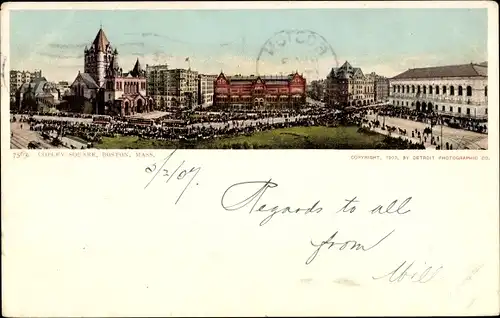 7569. COPLEY SQUARE, BOSTON, MASS.
COPYRIGHT, 1903, BY DETROIT PHOTOGRAPHIC CO.
3/2/07
Regards to all
from
Will